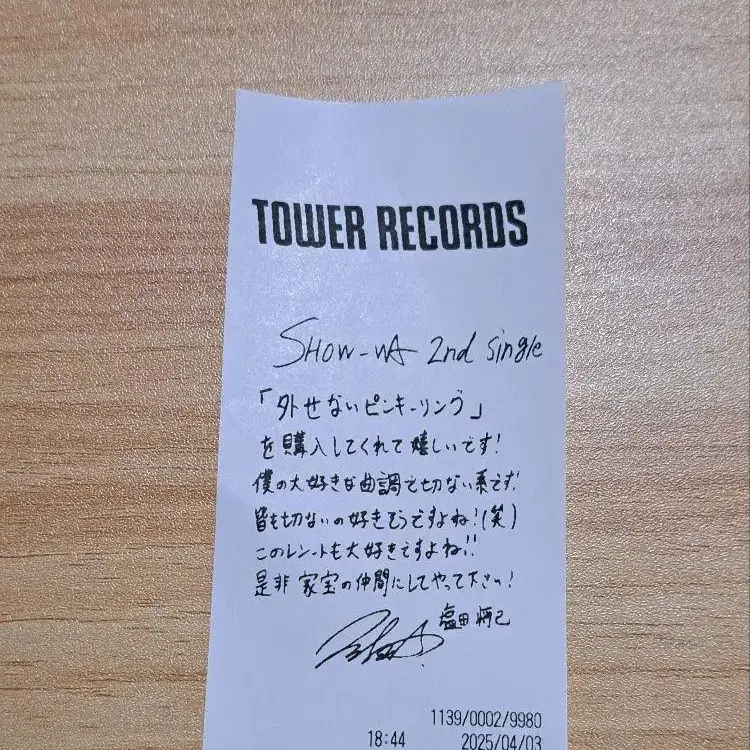 TOWER RECORDS
SHOW-WA 2nd single
「外せないピンキーリング」
を購入してくれて嬉しいです!
僕の大好きな曲調で切ない系です!
皆も切ないの好きそうですよね!(笑)
このレシートも大好きですよね!!
是非家宝の仲間にしてやって下さい!
塩田将己
1139/0002/9980
18:44 2025/04/03